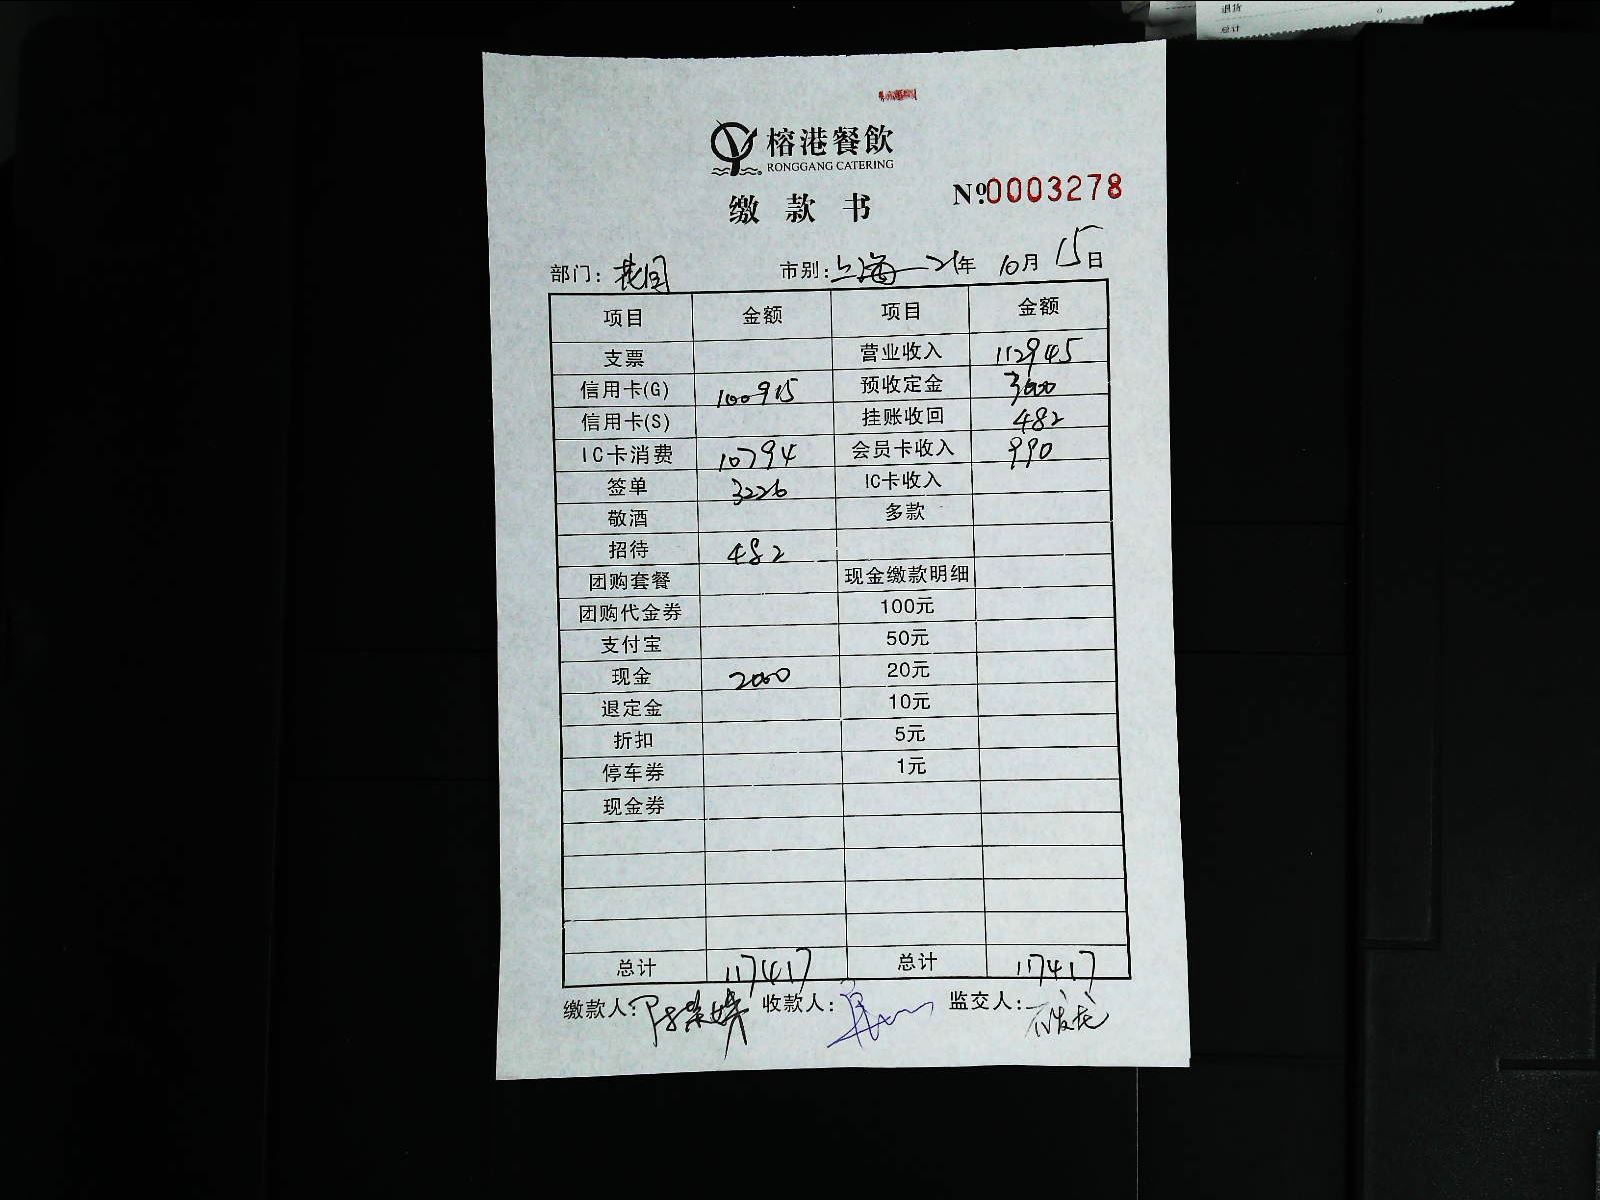 退货 0
总计
榕港餐飲
RONGGANG CATERING
缴款书
Nº:0003278
部门: 市别:上海 21年 10月 15日
项目 金额 项目 金额
支票 营业收入 112945
信用卡(G) 100915 预收定金 3000
信用卡(S) 挂账收回 482
IC卡消费 10794 会员卡收入 990
签单 3226 IC卡收入
敬酒 多款
招待 482
团购套餐 现金缴款明细
团购代金券 100元
支付宝 50元
现金 2000 20元
退定金 10元
折扣 5元
停车券 1元
现金券
总计 117417 总计 117417
缴款人: 收款人: 监交人: